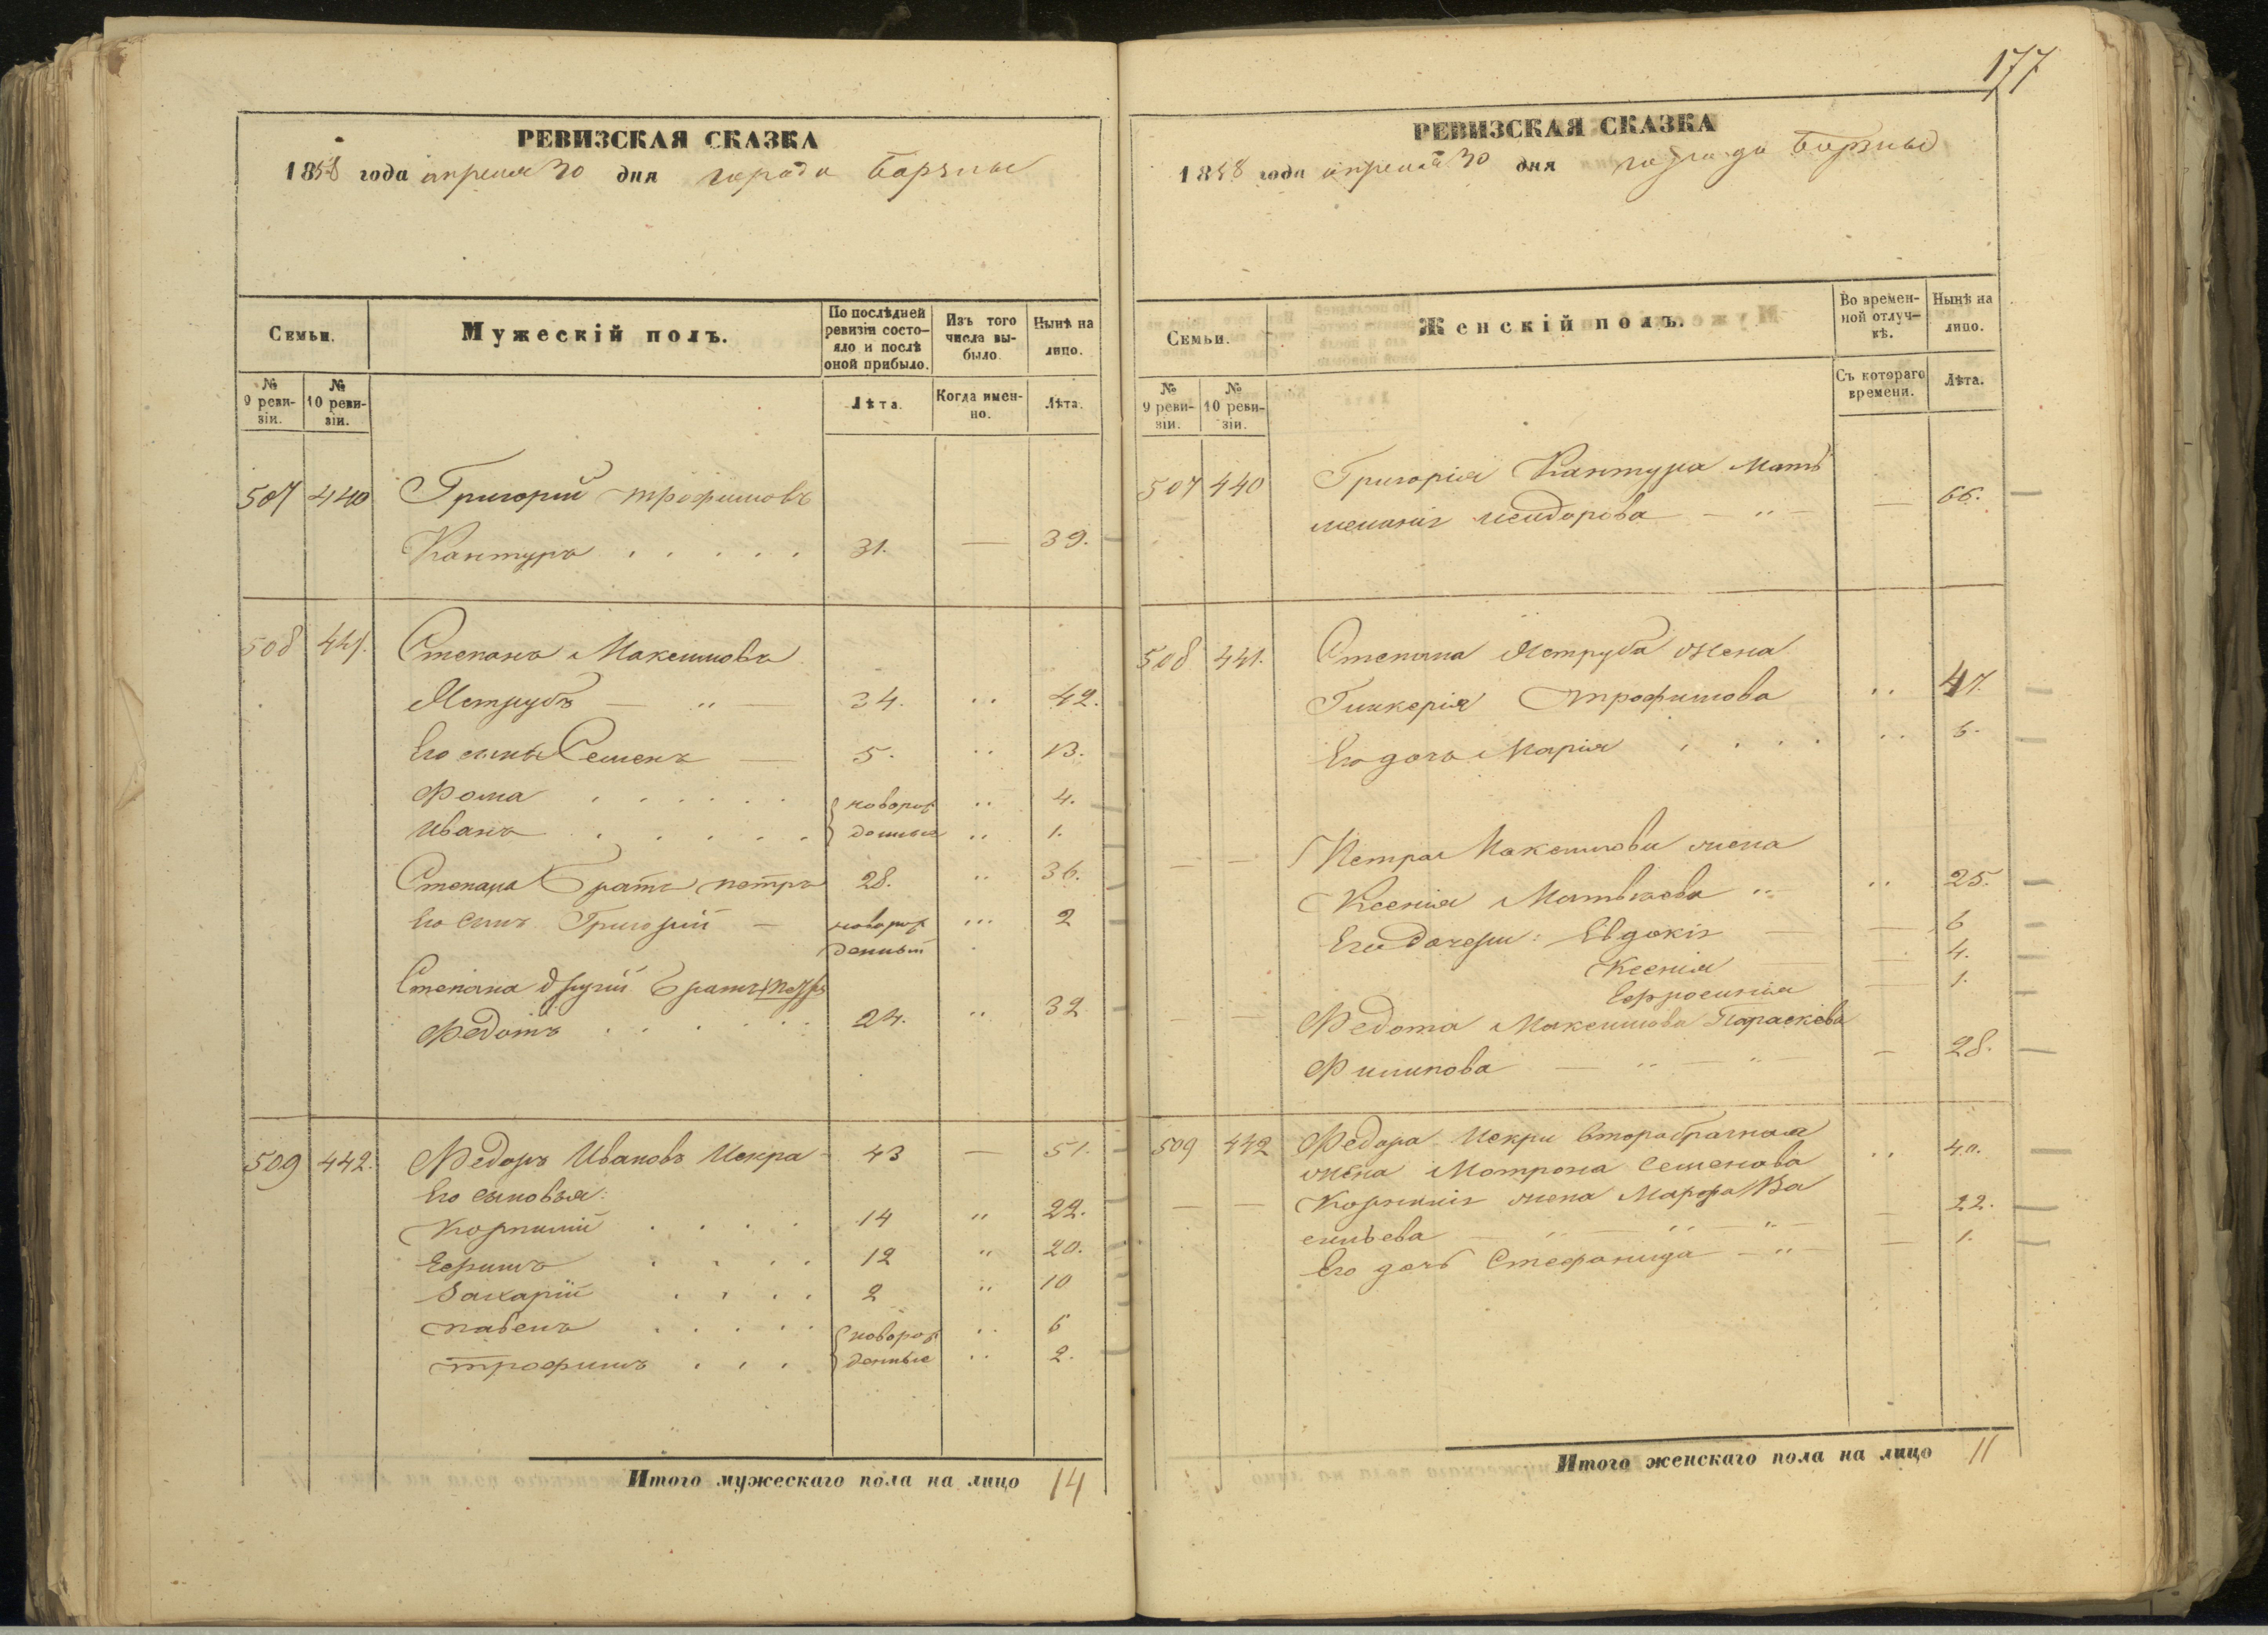 РЕВИЗСКАЯ СКАЗКА
1858 года апреля 30 дня города Борзны
Семьи.
Мужескій полъ.
По послѣдней ревизіи состояло и послѣ оной прибыло.
Изъ того числа выбыло.
Нынѣ на лицо.
№ 9 ревизіи.
№ 10 ревизіи.
Лѣта.
Когда именно.
Лѣта.
507 440 Григорий Трофимовъ
Кантура . . . . . 31. — 39.
508 441. Степанъ Максимовъ
Яструбъ — " — 34. .. 42.
Его сынъ Семенъ — 5. .. 13.
Фома . . . . . . новорож .. 4.
Иванъ . . . . . денные .. 1.
Степана Братъ Петръ 28. .. 36.
Его сынъ Григорий — новорож ... 2
денный
Степана другий Братъ
Федотъ . . . . . . 24. .. 32
509 442. Федоръ Ивановъ Искра - 43 — 51.
Его сыновья:
Корнилий . . . . 14 " 22.
Ефимъ . . . . 12 " 20.
Захарий . . . . 2 " 10
Павелъ . . . . . новорож .. 6
Трофимъ . . . денные .. 2.
Итого мужескаго пола на лицо 14
177
РЕВИЗСКАЯ СКАЗКА
1858 года апреля 30 дня города Борзны
Семьи.
Женскій полъ.
Во временной отлучкѣ.
Нынѣ на лицо.
№ 9 ревизіи.
№ 10 ревизіи.
Съ котораго времени.
Лѣта.
507 440 Григорія Кантура мать
— " — — 66.
508 441. Степана Яструба жена
Гликерія Трофимова .. 47.
Его дочь Марія . . . . .. 6.
— — Петра Максимова жена
Ксенія Матвѣева " .. 25.
Его дочери: Евдокія — — 6
Ксенія — — 4.
Ефросинія — 1.
— — Федота Максимова Параскева
Филипова — " — " — — 28.
509 442 Федора Искры вторабрачная
жена Мотрона Семенова .. 40.
— — Корнилія жена Марфа Ва
сильева — " — " — — 22.
Его дочь Стефанида — " — — 1.
Итого женскаго пола на лицо 11